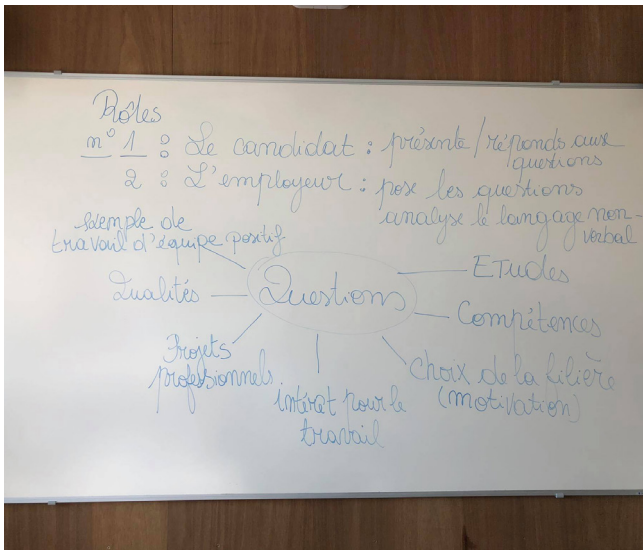 Rôles
n° 1 : Le candidat : présente/réponds aux
questions
2 : L'employeur : pose les questions
analyse le langage non-
verbal
exemple de
travail d'équipe positif
Qualités
Questions
ETudes
Compétences
Projets
professionnels
intérêt pour le
travail
choix de la filière
(motivation)